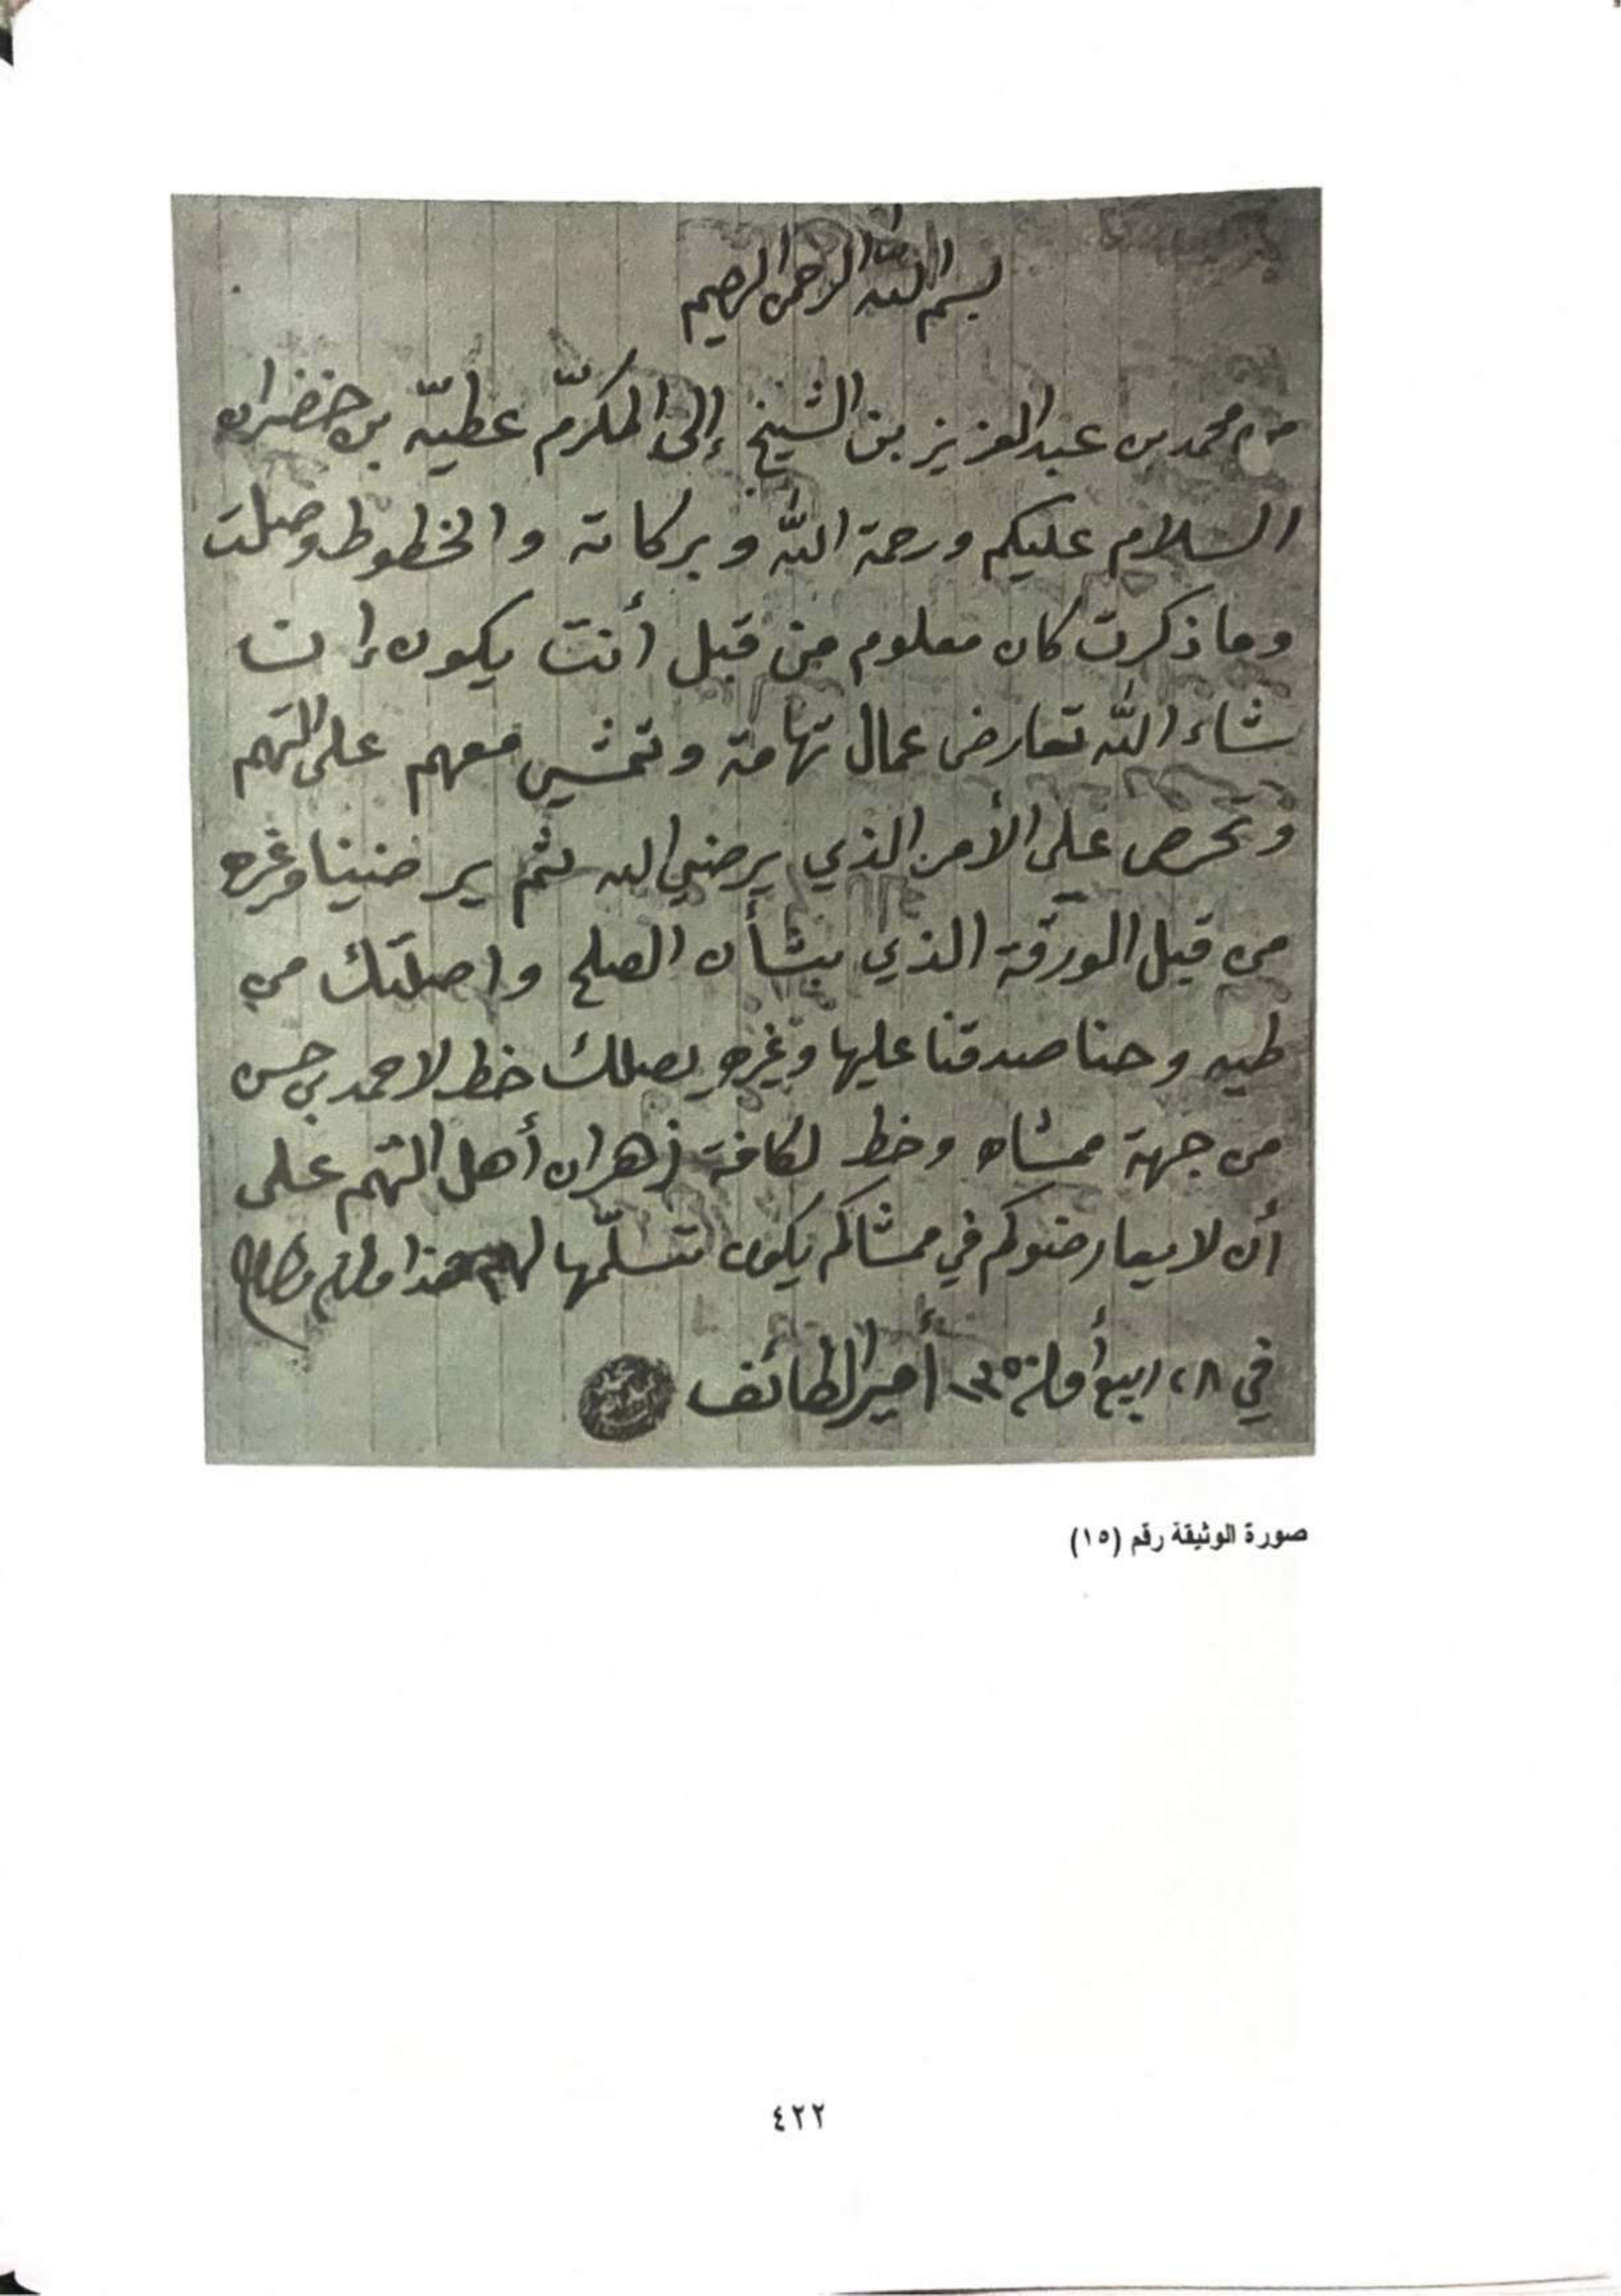 بسم الله الرحمن الرحيم
من محمد بن عبدالعزيز بن الشيخ إلى المكرّم عطيّه بن خضران
السلام عليكم ورحمة اللّه وبركاته والخطوط وصلت
وما ذكرت كان معلوم من قبل أنت يكون إن
شاء اللّه تعارض عمال تهامة وتمشي معهم على التهم
وتحرص على الأمر الذي يرضي الله ثم يرضينا وغيره
من قبل الورقة الذي بشأن الصلح واصلتك من
طيه وحنا صدقنا عليها وغيره يصلك خط لاحمد بن حسن
من جهة ممشاه وخط لكافة زهران أهل التهم على
أن لا يعارضوكم في ممشاكم يكون تتسلّمها لهم هذا
في ٢٨ ربيع أول أمير الطائف
صورة الوثيقة رقم (١٥)
٤٢٢